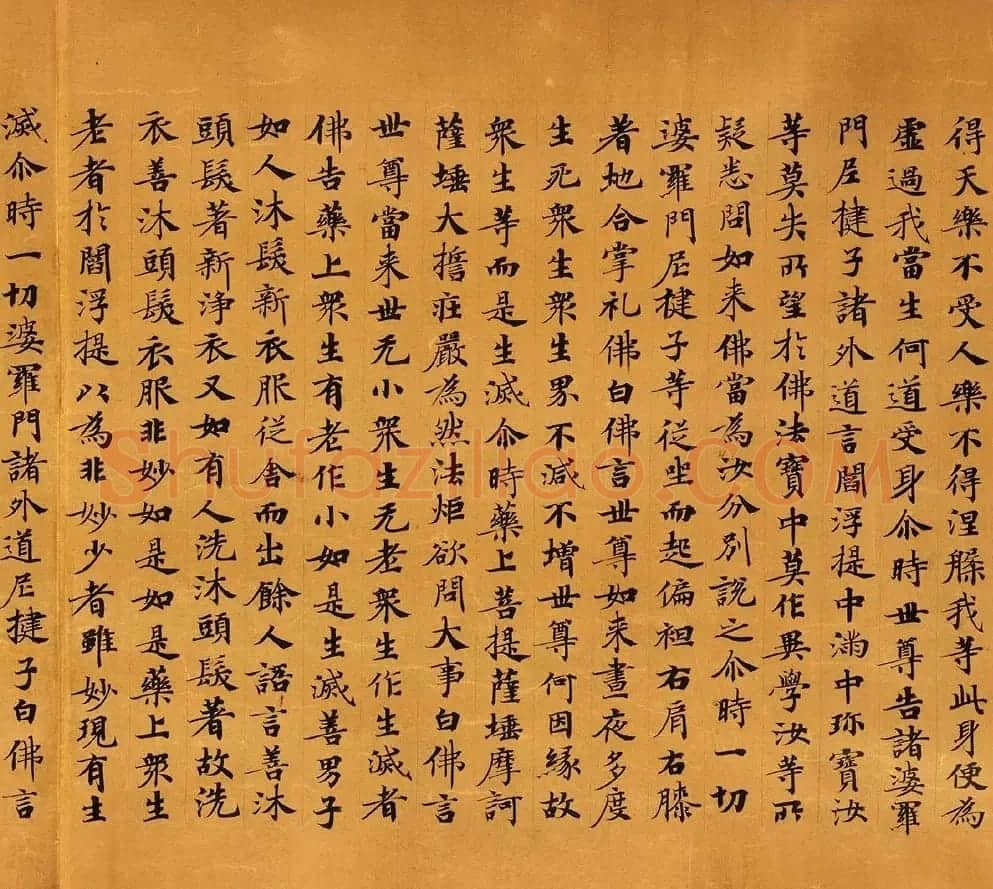 得天樂不受人樂不得涅槃我等此身便為
虛過我當生何道受身尒時世尊告諸婆羅
門尼揵子諸外道言閻浮提中滿中珎寶汝
等莫失所望於佛法寶中莫作異學汝等所
疑悉問如来佛當為汝分別說之尒時一切
婆羅門尼揵子等従坐而起偏袒右肩右膝
著地合掌礼佛白佛言世尊如来晝夜多度
生死衆生衆生界不減不增世尊何因緣故
衆生等而是生滅尒時藥上菩提薩埵摩訶
薩埵大擔莊嚴為然法炬欲問大事白佛言
世尊當来世无小衆生无老衆生作生滅者
佛告藥上衆生有老作小如是生滅善男子
如人沐髮新衣服従舍而出餘人語言善沐
頭髮著新淨衣又如有人洗沐頭髮著故洗
衣善沐頭髮衣服非妙如是如是藥上衆生
老者於閻浮提以為非妙少者雖妙現有生
滅尒時一切婆羅門諸外道尼揵子白佛言
Shufaziliao.COM